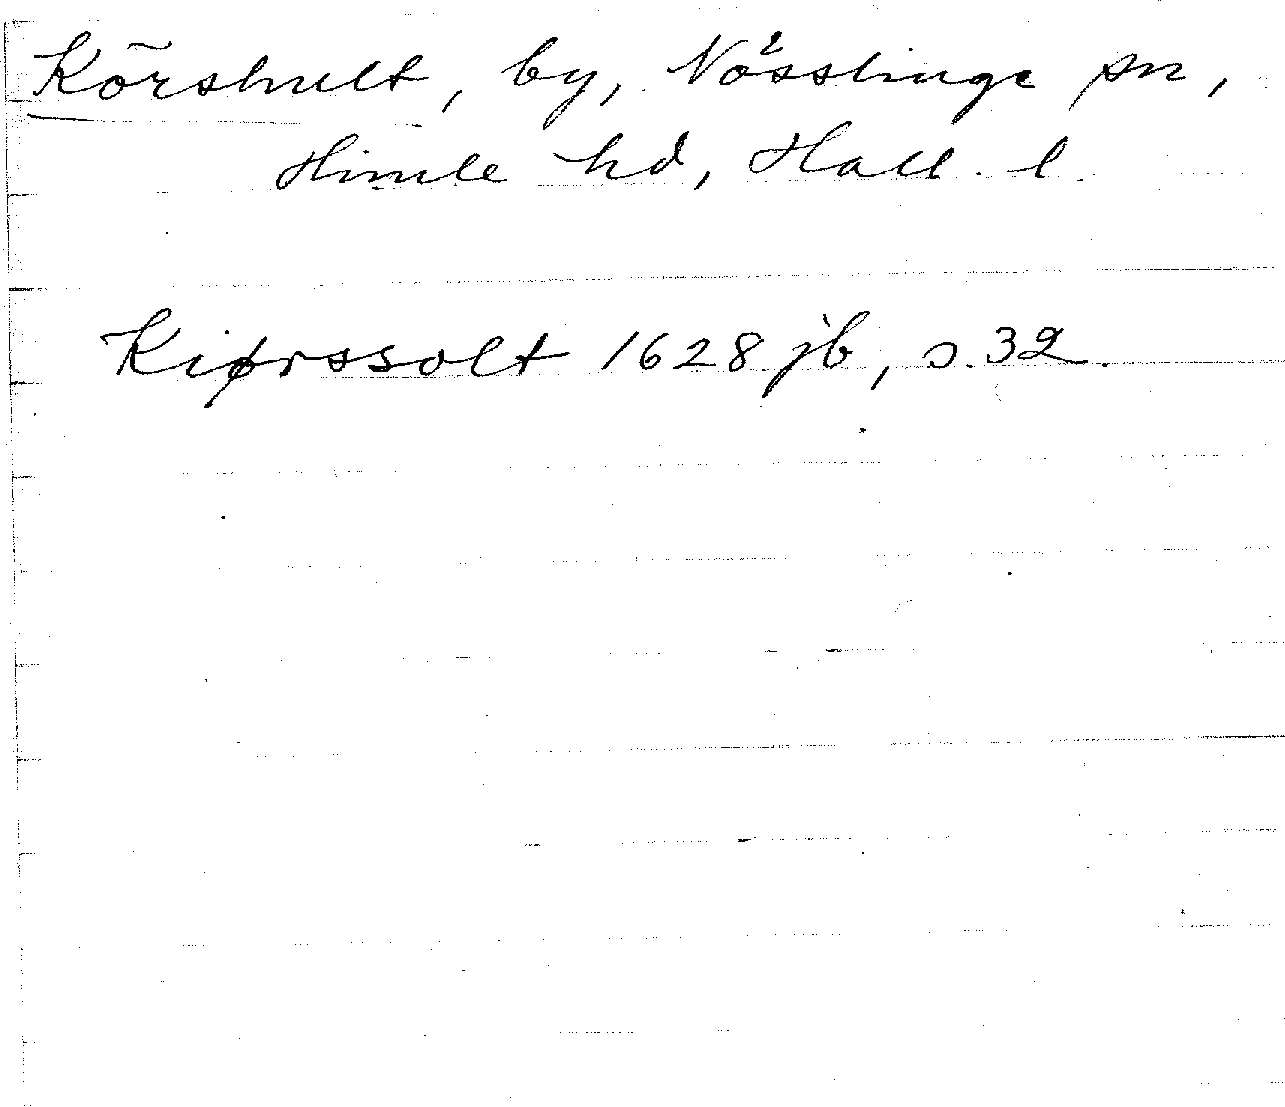 Körshult, by, Nösslinge sn,
Himle hd, Hall. l.
Kiørssolt 1628 jb, s. 32.